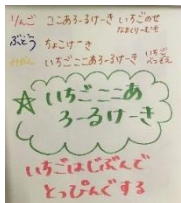 りんご ココあろーるけーき いちごのせ
なまくりーむも
ぶどう ちょこけーき
みかん いちごここあろーるけーき いちご
べつぞえ
☆ いちごここあ
ろーるけーき
いちごはじぶんで
とっぴんぐする